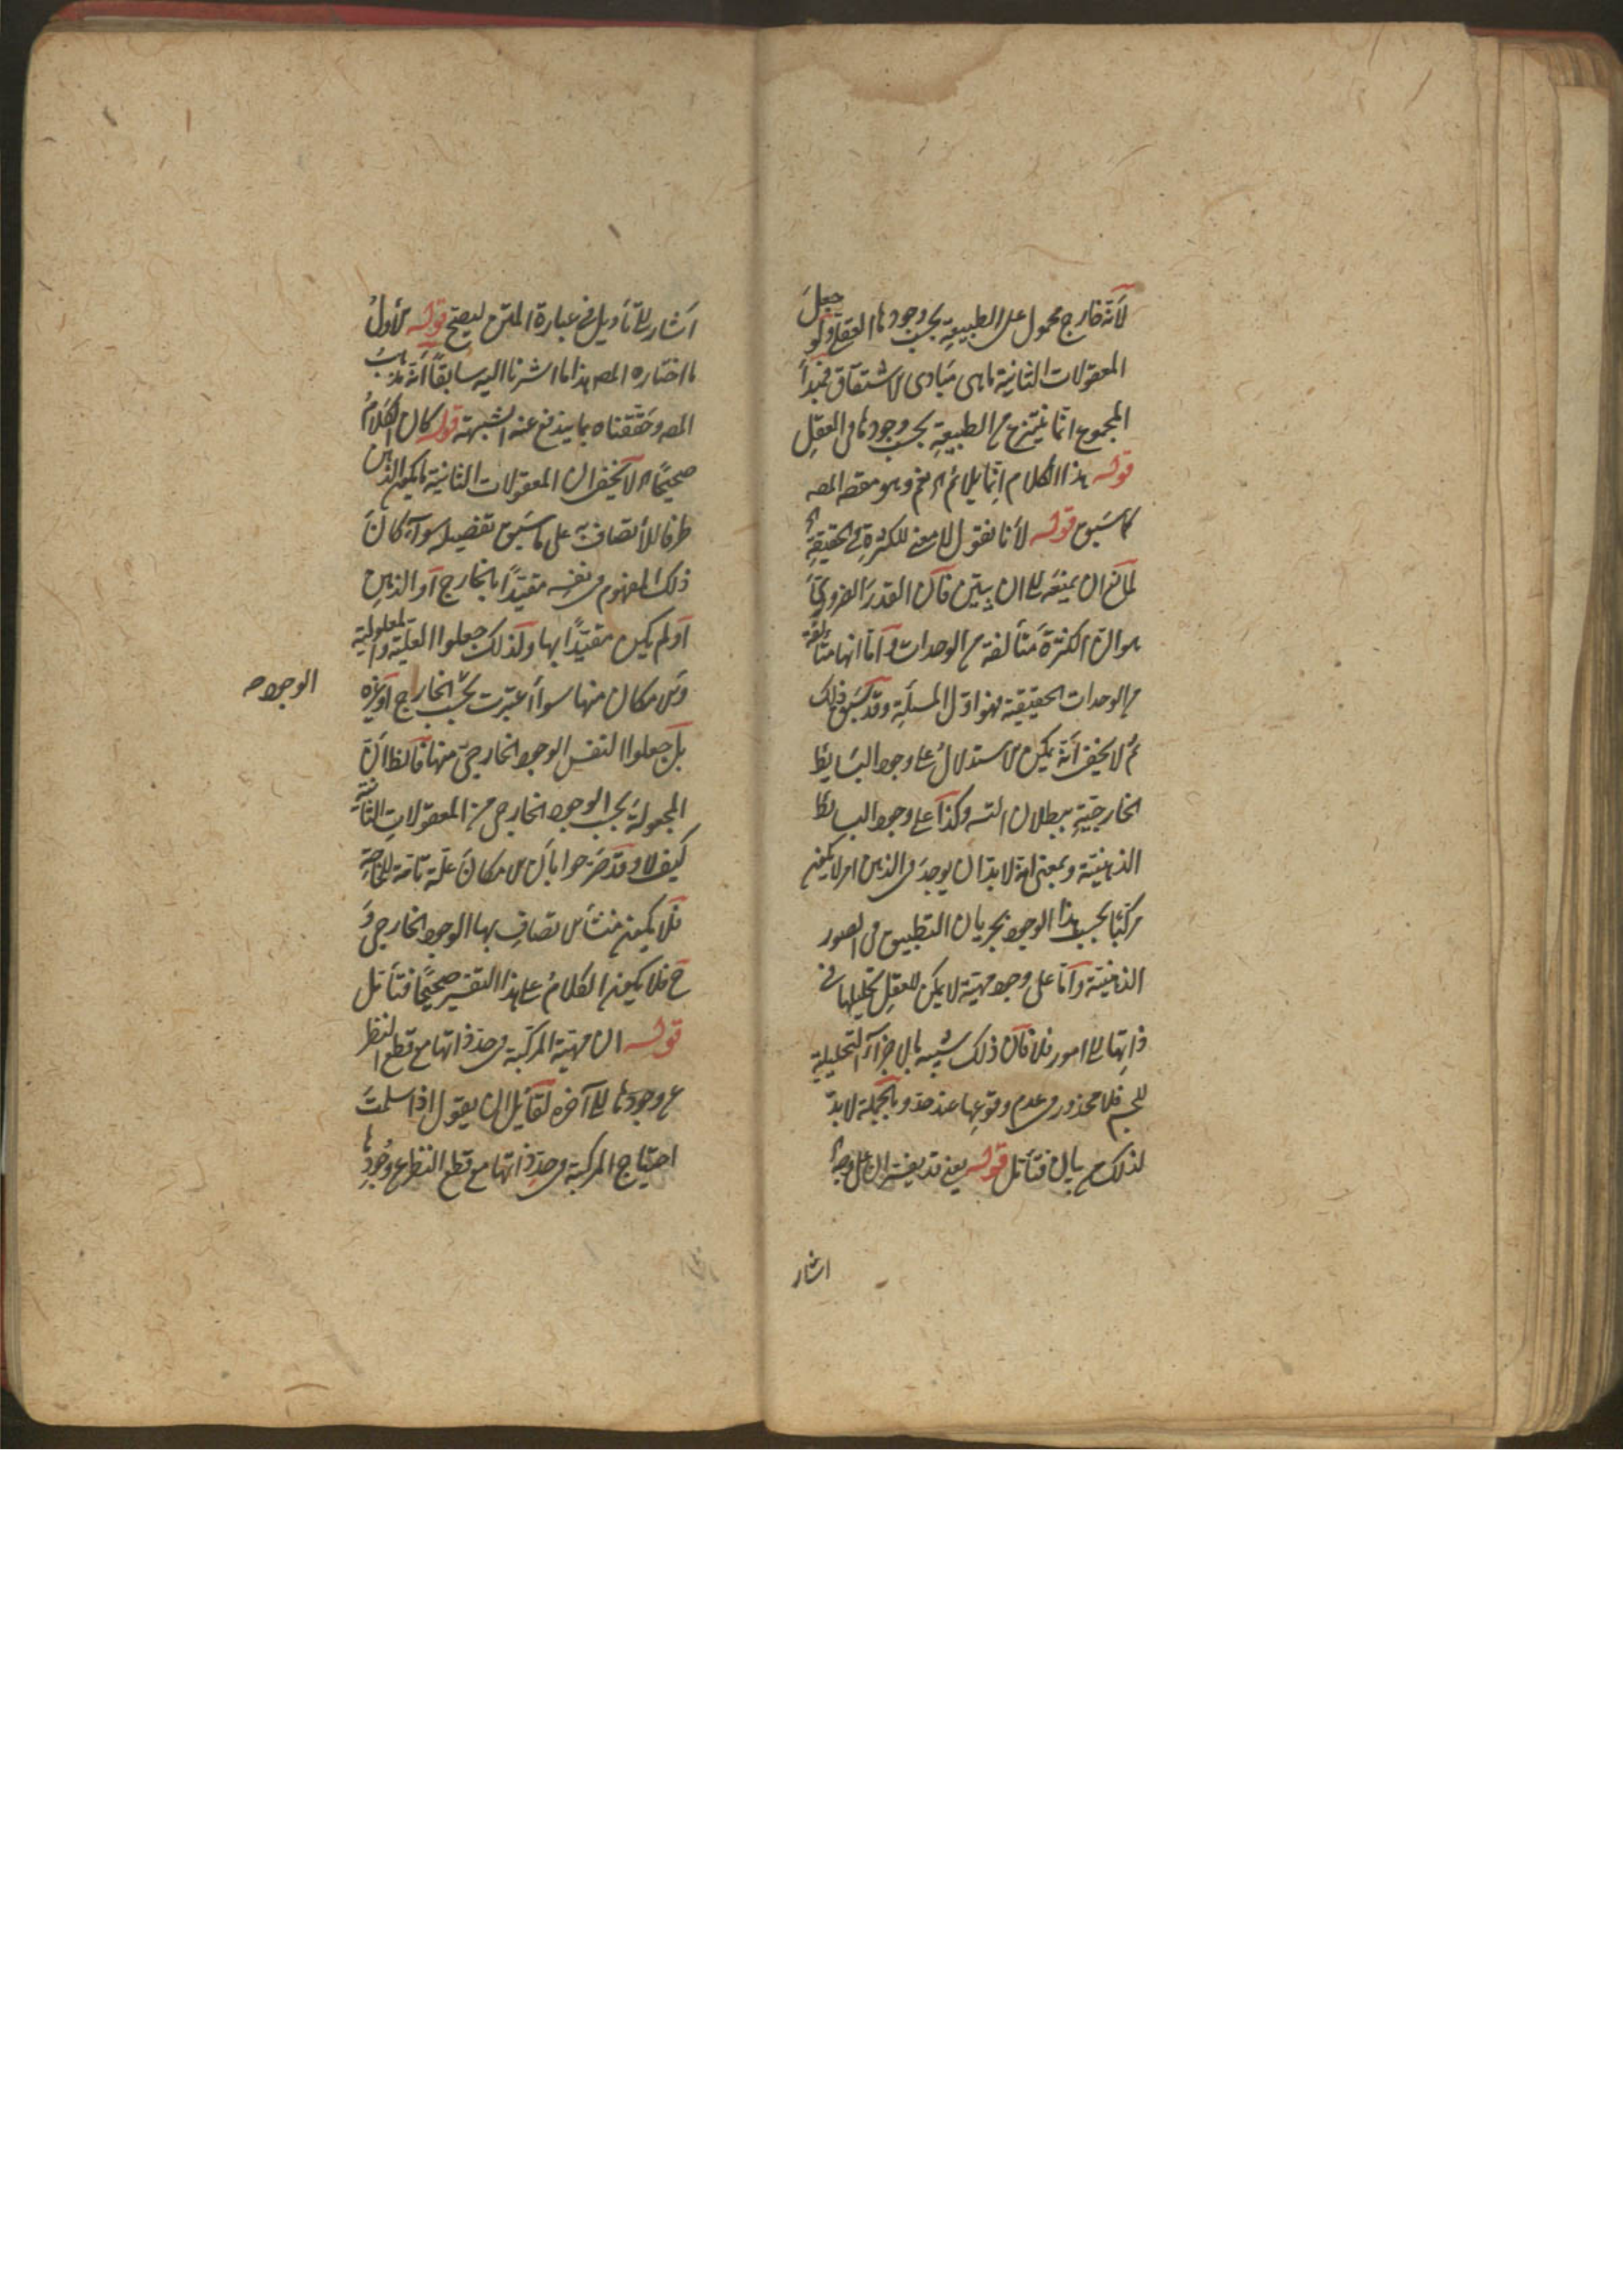 لأنه خارج محمول على الطبيعة بحسب وجودها العقلي ولو جعل
المعقولات الثانية ما هى مبادى الاشتقاق فمبدأ
المجموع انما ينتزع من الطبيعة بحسب وجودها فى العقل
قوله هذا الكلام انما يلائم وهو مقصد المصـ
كما سبق قوله لأنا نقول لا معنى للكثرة فى الحقيقة
لمانع ان يمنعه الى ان يبين فان القدر الضرورى
هو ان الكثرة متألفة من الوحدات واما انها متألفة
من الوحدات الحقيقية فهو اول المسئلة وقد سبق ذلك
ثم لا يخفى أنه يمكن الاستدلال على وجود البسايط
الخارجية ببطلان التسـ وكذا على وجود البسائط
الذهنية وبمعنى انه لا بد ان يوجد فى الذهن امر لا يكون
مركبا بحسب هذا الوجود بجريان التطبيق فى الصور
الذهنية واما على وجود مهية لا يمكن للعقل تحليلها فى
ذاتها الى امور فلا فان ذلك شبيه بالاجزاء التحليلية
للجسم فلا محذور فى عدم وقوعها عند حد وبالجملة لا بد
لذلك من بيان فتأمل قوله يعنى قد يفسر ان على وجه
اشار
أشار الى تأويل فى عبارة المتن ليصح قوله الأول
ما اختاره المصـ هذا ما اشرنا اليه سابقا أنه مذهب
المصـ وحققناه بما يندفع عنه الشبهة قوله كان الكلام
صحيحا لا يخفى ان المعقولات الثانية ما يكون الذهن
ظرفا للأتصاف به على ما سبق تفصيله سوآء كان
ذلك المفهوم فى نفسه مقيدا بالخارج أو الذهن
أو لم يكن مقيدا بها ولذلك جعلوا العلية والمعلولية
والامكان منها سواء اعتبرت بحسب الخارج أو غيره
الوجود صـ
بل جعلوا نفس الوجود الخارجى منها فالظ أن
المجعولية بحسب الوجود الخارجى من المعقولات الثانية
كيف لا وقد صرحوا بأن الامكان علة تامة للحاجة
فلا يكون منشأ الاتصاف بها الوجود الخارجى و
ح فلا يكون الكلام على هذا التفسير صحيحا فتأمل
قوله ان مهية المركبة فى حد ذاتها مع قطع النظر
عن وجودها الى آخره لقائل ان يقول اذا سلمت
احتياج المركبة فى حد ذاتها مع قطع النظر عن وجودها